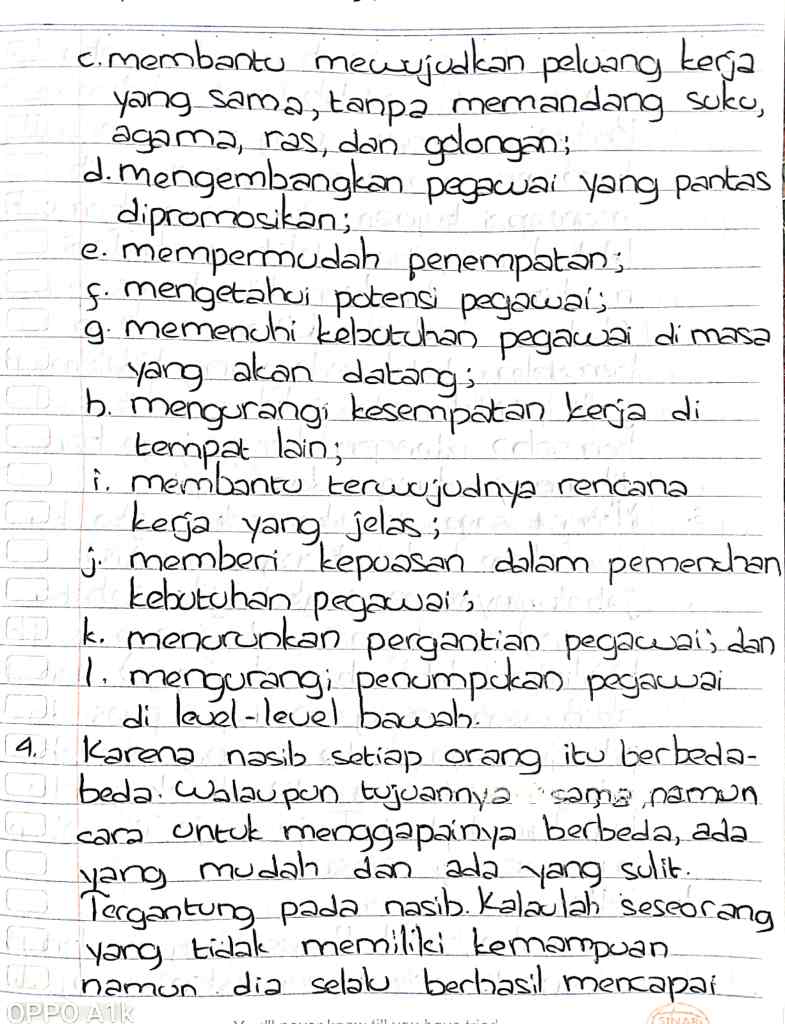 c. membantu mewujudkan peluang kerja
yang sama, tanpa memandang suku,
agama, ras, dan golongan;
d. mengembangkan pegawai yang pantas
dipromosikan;
e. mempermudah penempatan;
f. mengetahui potensi pegawai;
g. memenuhi kebutuhan pegawai di masa
yang akan datang;
h. mengurangi kesempatan kerja di
tempat lain;
i. membantu terwujudnya rencana
kerja yang jelas;
j. memberi kepuasan dalam pemenuhan
kebutuhan pegawai;
k. menurunkan pergantian pegawai; dan
l. mengurangi penumpukan pegawai
di level-level bawah.
4. Karena nasib setiap orang itu berbeda-
beda. Walaupun tujuannya sama, namun
cara untuk menggapainya berbeda, ada
yang mudah dan ada yang sulit.
Tergantung pada nasib. Kalaulah seseorang
yang tidak memiliki kemampuan
namun dia selalu berhasil mencapai
OPPO A1k
SINAR